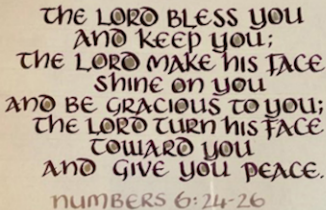 the LORD BLESS you
AND keep you;
the LORD MAKE his FACE
shine on you
AND BE GRACIOUS to you;
the LORD turn his FACE
towARD you
AND GIVE you PEACE.
NUMBERS 6:24-26